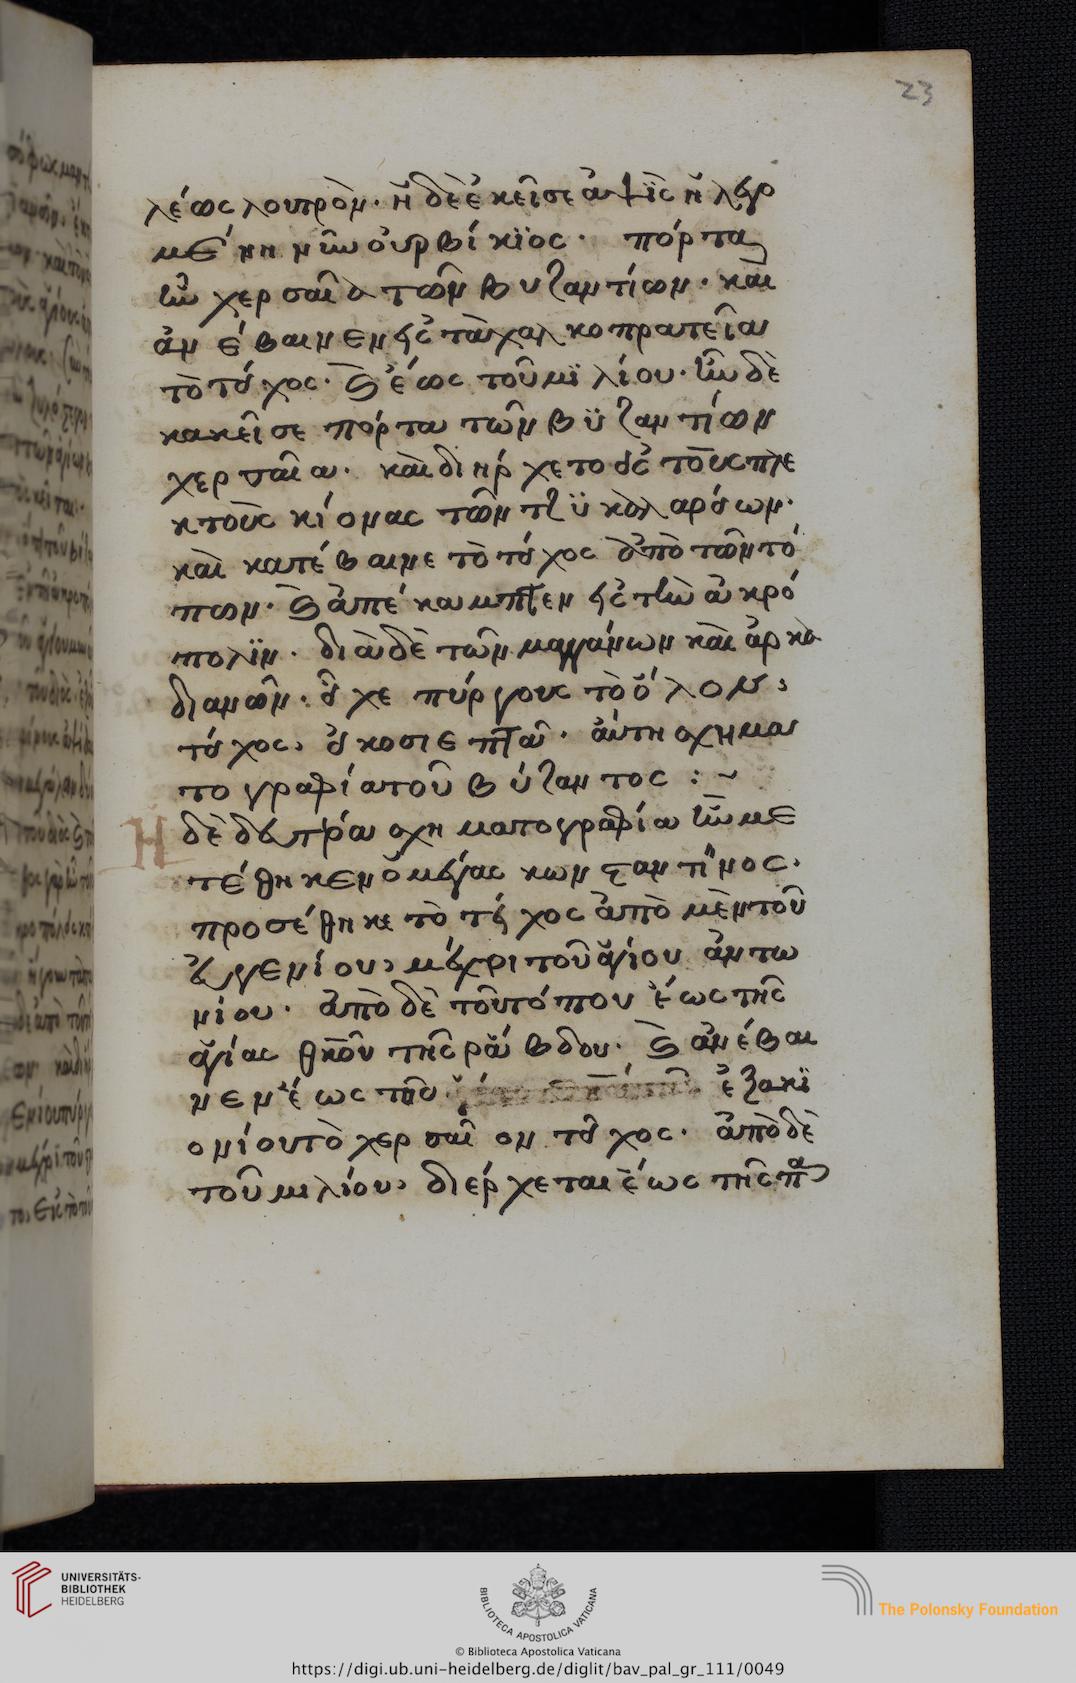 23
λέως λουτρὸν· ἡ δὲ ἐκεῖσε ἁψῒς ἡ λεγο
μένη νῦν οὐρβίκϊος· πόρτα
ἦν χερσαία τῶν Βυζαντίων· καὶ
ἀνέβαινεν εἰς τὰ χαλκοπρατεῖα
τὸ τεῖχος· καὶ ἕως τοῦ μιλίου· ἦν δὲ
κακεῖσε πόρτα τῶν Βϋζαντίων
χερσαία· καὶ διήρχετο εἰς τοὺς πλε
κτοὺς κίονας τῶν τζϋκαλαρείων·
καὶ κατέβαινε τὸ τεῖχος ἀπὸ τῶν τό
πων· καὶ ἀπέκαμπτεν εἰς τὴν ἀκρό
πολϊν· διὰ δὲ τῶν μαγγάνων καὶ ἀρκα
διανῶν· εἶχε πύργους τὸ ὅλον
τεῖχος, εἰκοσιεπτά· αὕτη σχημα
τογραφία τοῦ Βύζαντος :~
Ἡ δὲ δευτέρα σχηματογραφία ἦν με
τέθηκεν ὁ μέγας κωνσταντῖνος·
προσέθηκε τὸ τεῖχος ἀπὸ μὲν τοῦ
εὐγενίου, μέχρι τοῦ ἁγίου ἀντω
νίου· ἀπὸ δὲ τοῦ τόπου ἕως τῆς
ἁγίας θκου τῆς ῥάβδου· καὶ ἀνέβαι
νεν ἕως τοῦ ἐξακϊ
ονίου τὸ χερσαῖον τεῖχος· ἀπὸ δὲ
τοῦ μιλίου, διέρχεται ἕως τῆς
UNIVERSITÄTS-
BIBLIOTHEK
HEIDELBERG
BIBLIOTECA APOSTOLICA VATICANA
The Polonsky Foundation
© Biblioteca Apostolica Vaticana
https://digi.ub.uni-heidelberg.de/diglit/bav_pal_gr_111/0049